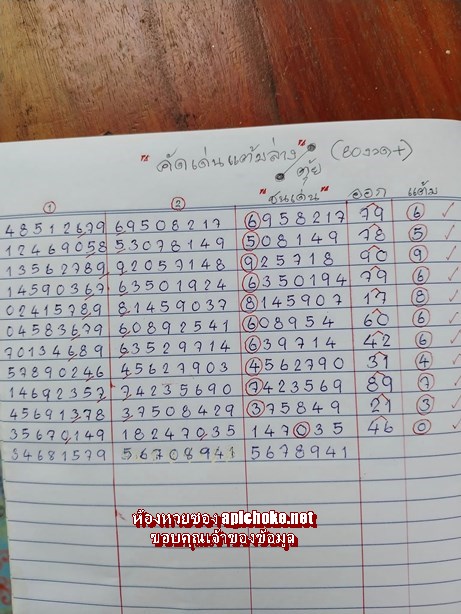 "คัดเด่นแต้มล่าง" (80งวด+)
ตุ้ย
① ② "ชนเด่น" ออก แต้ม
48512679 69508217 6958217 79 6 ✓
12469058 53078149 508149 78 5 ✓
13562789 92057148 925718 90 9 ✓
14590367 63501924 6350194 79 6 ✓
02415789 81459037 8145907 17 8 ✓
04583679 60892541 608954 60 6 ✓
70134689 63529714 639714 42 6 ✓
57890246 45627903 4562790 31 4 ✓
14692357 74235690 7423569 89 7 ✓
45691378 37508429 375849 21 3 ✓
35670149 18247035 147035 46 0 ✓
34681579 56708941 5678941
ห้องหวยซอง apichoke.net
ขอบคุณเจ้าของข้อมูล